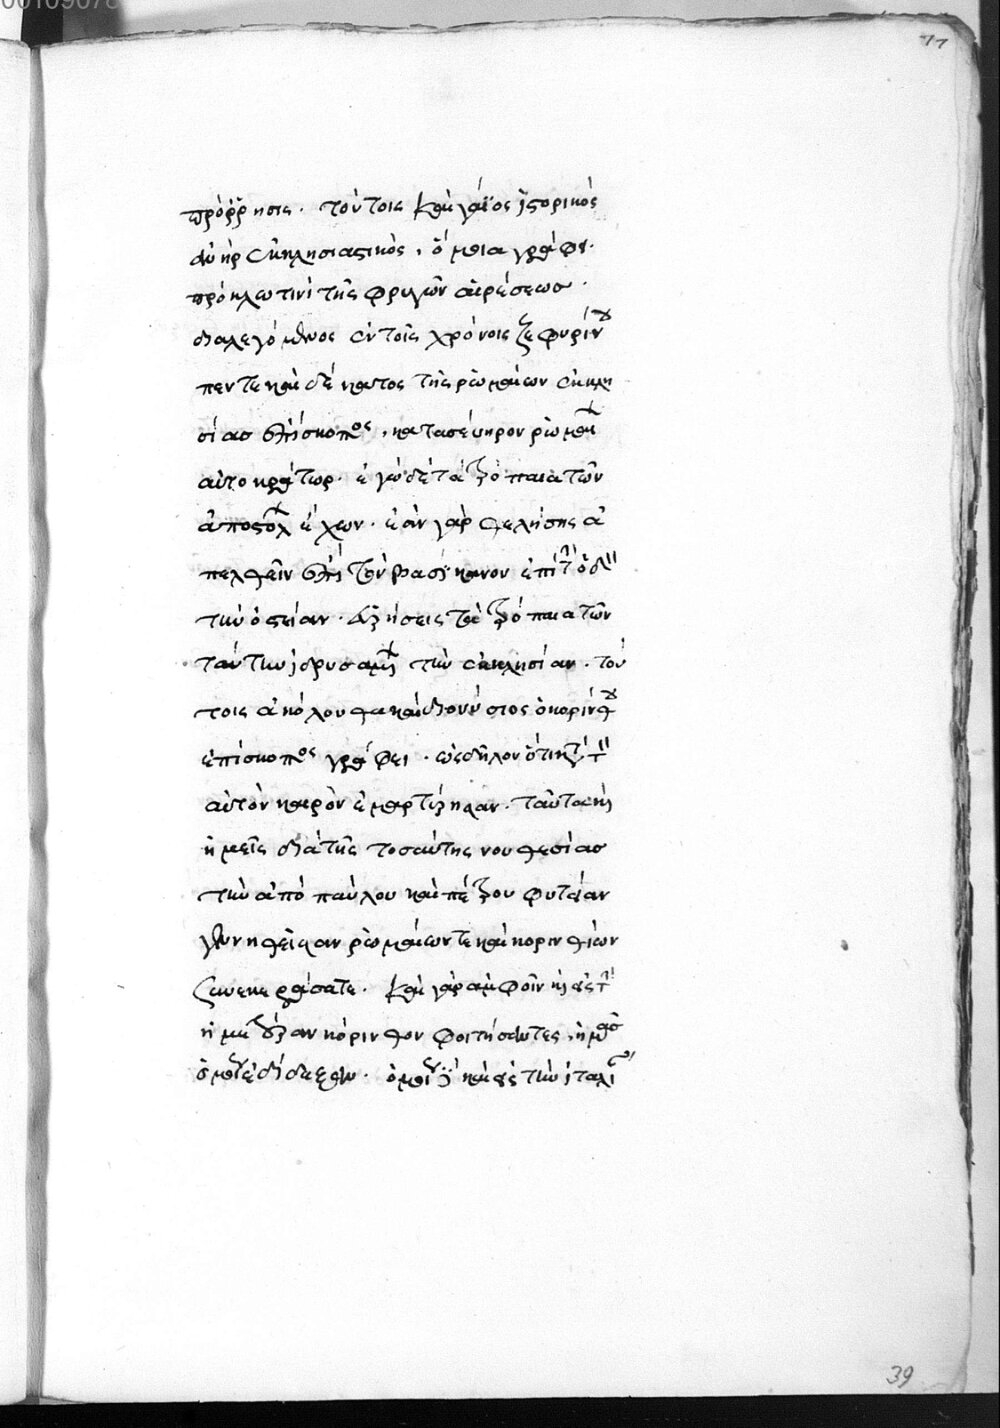 00109078
77
πρόῤῥησις. τούτοις καὶ γάϊος ἱστορικὸς
ἀνὴρ ἐκκλησιαστικὸς, ὅμοια γράφει.
πρόκλω τινὶ τῆς φρυγῶν αἱρέσεως.
διαλεγόμενος ἐν τοῖς χρόνοις ζεφυρίνου
πεντεκαιδέκατος τῆς ῥωμαίων ἐκκλη
σίας ἐπίσκοπος, κατασέυηρον ῥωμαι
αὐτοκράτωρ. ἐγώ δὲ τὰ τρόπαια τῶν
ἀποστόλ ἔχων. ἐὰν γὰρ θελήσης ἀ
πελθεῖν ἐπὶ τὸν βασϊκανον ἐπὶ τ ὁδ
τὴν ὀστείαν. εὑρήσεις τὰ τρόπαια τῶν
ταύτην ἱδρυσαμ τὴν ἐκκλησίαν. τού
τοις ἀκόλουθα καὶ διονύσιος ὁ κορίνθου
ἐπίσκοπος γράφει. ὡς δῆλον ὅτι κατὰ τ
αὐτὸν καιρὸν ἐμαρτύρησαν. ταῦτα καὶ
ἡμεῖς διὰ τῆς τοσαύτης νουθεσίας
τὴν ἀπὸ παύλου καὶ πέτρου φυτείαν
γεννηθεῖσαν ῥωμαίων τε καὶ κορινθίων
συνεκεράσατε. καὶ γὰρ ἀμφοῖν καὶ εἰς τ
ἡμετέραν κόρινθον φοιτήσαντες, ἡμᾶς
ὁμοῦ ἐδίδαξαν. ὁμοί καὶ εἰς τὴν ἰταλί
39